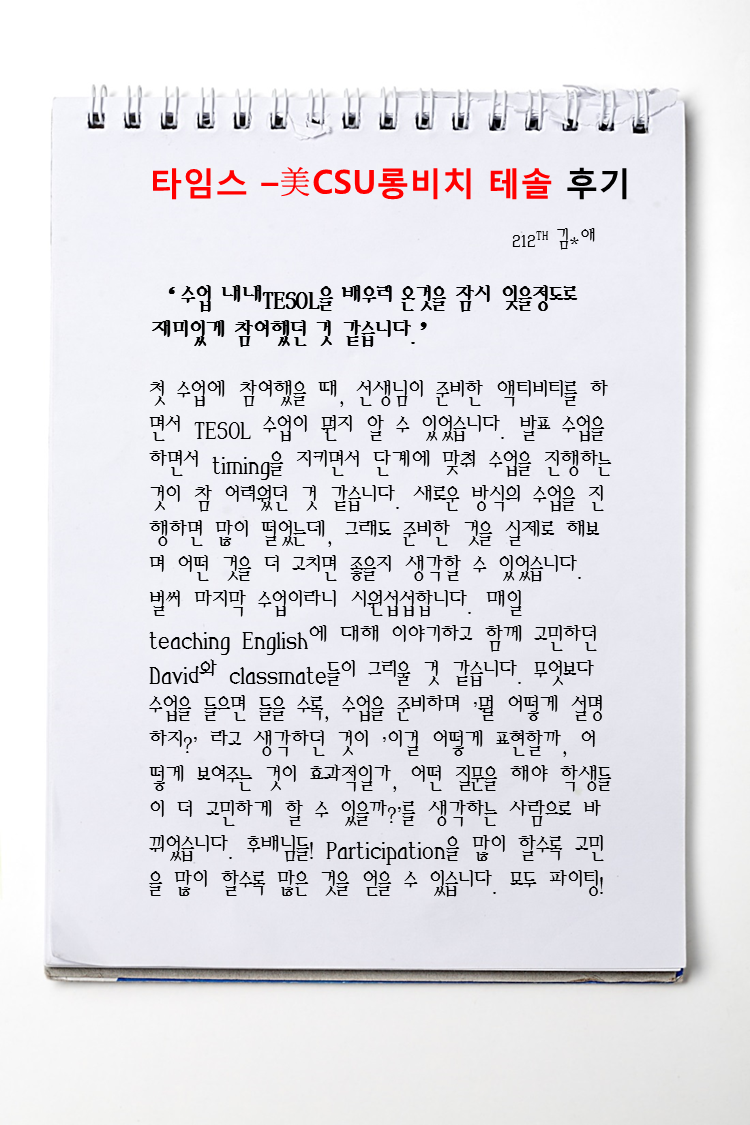 타임스 –美CSU롱비치 테솔 후기
212TH 김*애
‘수업 내내TESOL을 배우러 온것을 잠시 잊을정도로
재미있게 참여했던 것 같습니다.’
첫 수업에 참여했을 때, 선생님이 준비한 액티비티를 하
면서 TESOL 수업이 뭔지 알 수 있었습니다. 발표 수업을
하면서 timing을 지키면서 단계에 맞춰 수업을 진행하는
것이 참 어려웠던 것 같습니다. 새로운 방식의 수업을 진
행하면 많이 떨었는데, 그래도 준비한 것을 실제로 해보
며 어떤 것을 더 고치면 좋을지 생각할 수 있었습니다.
벌써 마지막 수업이라니 시원섭섭합니다. 매일
teaching English에 대해 이야기하고 함께 고민하던
David와 classmate들이 그리울 것 같습니다. 무엇보다
수업을 들으면 들을 수록, 수업을 준비하며 ’뭘 어떻게 설명
하지?’ 라고 생각하던 것이 ’이걸 어떻게 표현할까, 어
떻게 보여주는 것이 효과적일가, 어떤 질문을 해야 학생들
이 더 고민하게 할 수 있을까?’를 생각하는 사람으로 바
뀌었습니다. 후배님들! Participation을 많이 할수록 고민
을 많이 할수록 많은 것을 얻을 수 있습니다. 모두 파이팅!